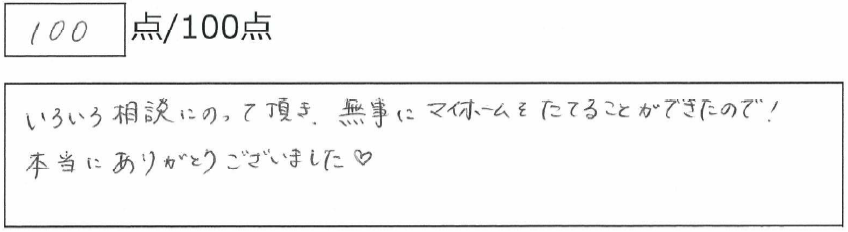 100 点/100点
いろいろ相談にのって頂き、無事にマイホームをたてることができたので！
本当にありがとうございました♡